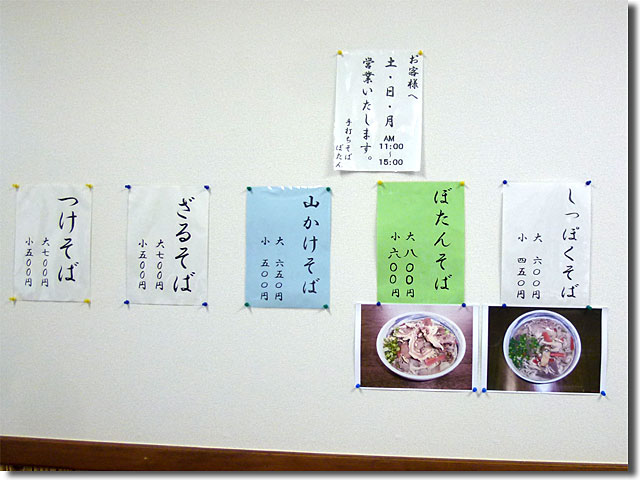 お客様へ
土・日・月
AM
11:00
～
15:00
営業いたします。
手打ちそば
ぼたん
しっぽくそば
大 六００円
小 四五０円
ぼたんそば
大 八００円
小 六００円
山かけそば
大 六五０円
小 五００円
ざるそば
大 七００円
小 五００円
つけそば
大 七００円
小 五００円